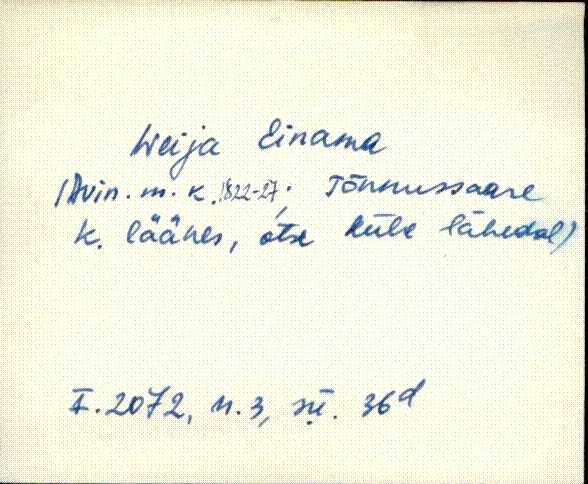 Weija Einama
(Avin. m. k. 1822-27; Tõnnussaare
k. läänes, otse küla lähedal)
F. 2072, n. 3, sü. 36d